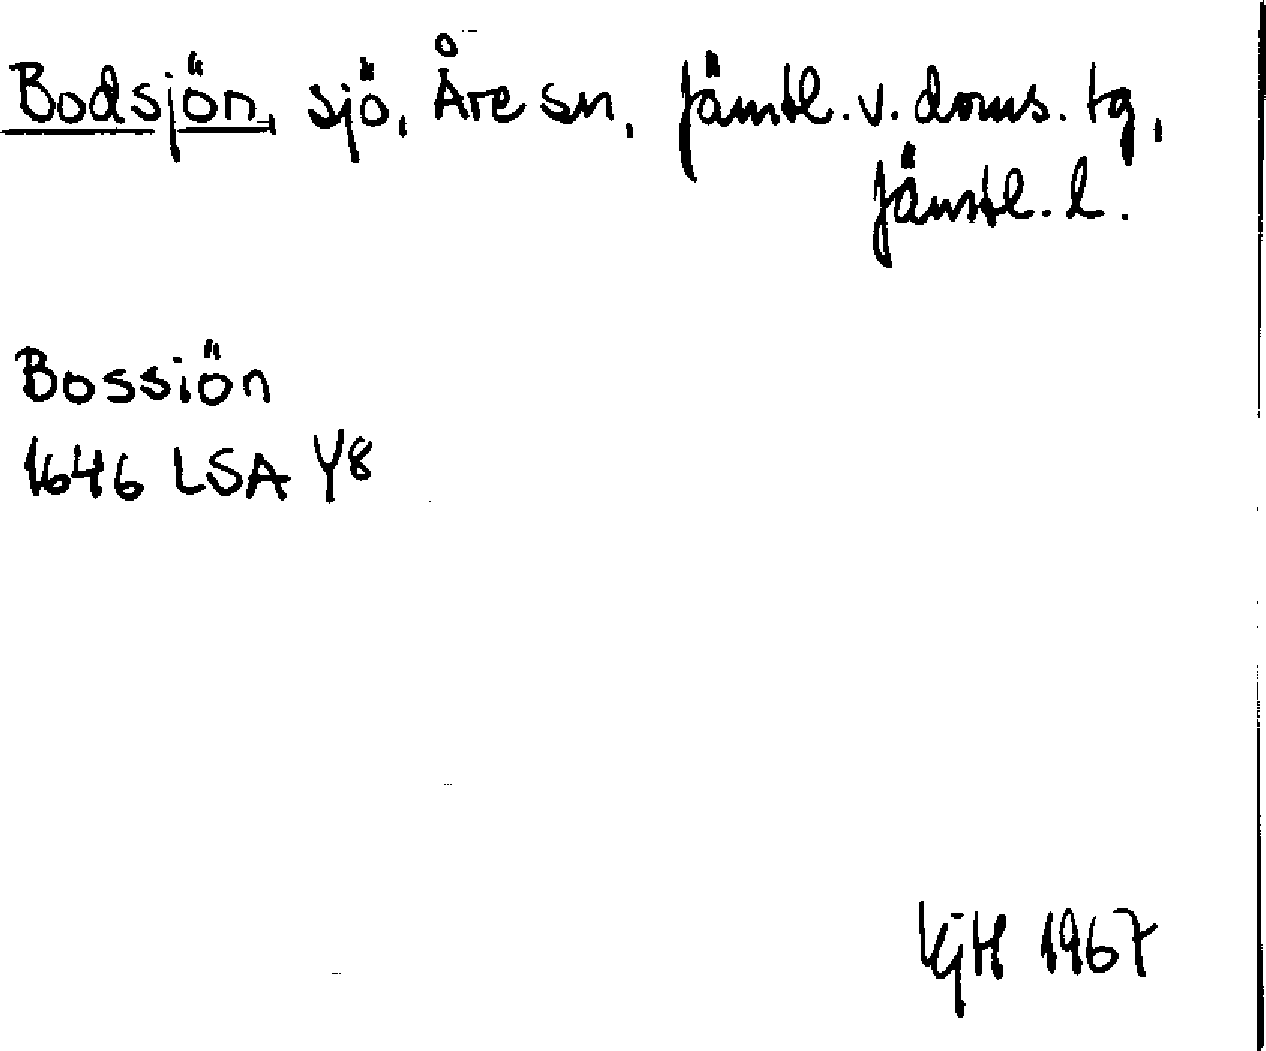 Bodsjön, sjö, Åre sn, Jämtl. v. doms. tg,
Jämtl. l.
Bossiön
1646 LSA Y8
KjH 1967